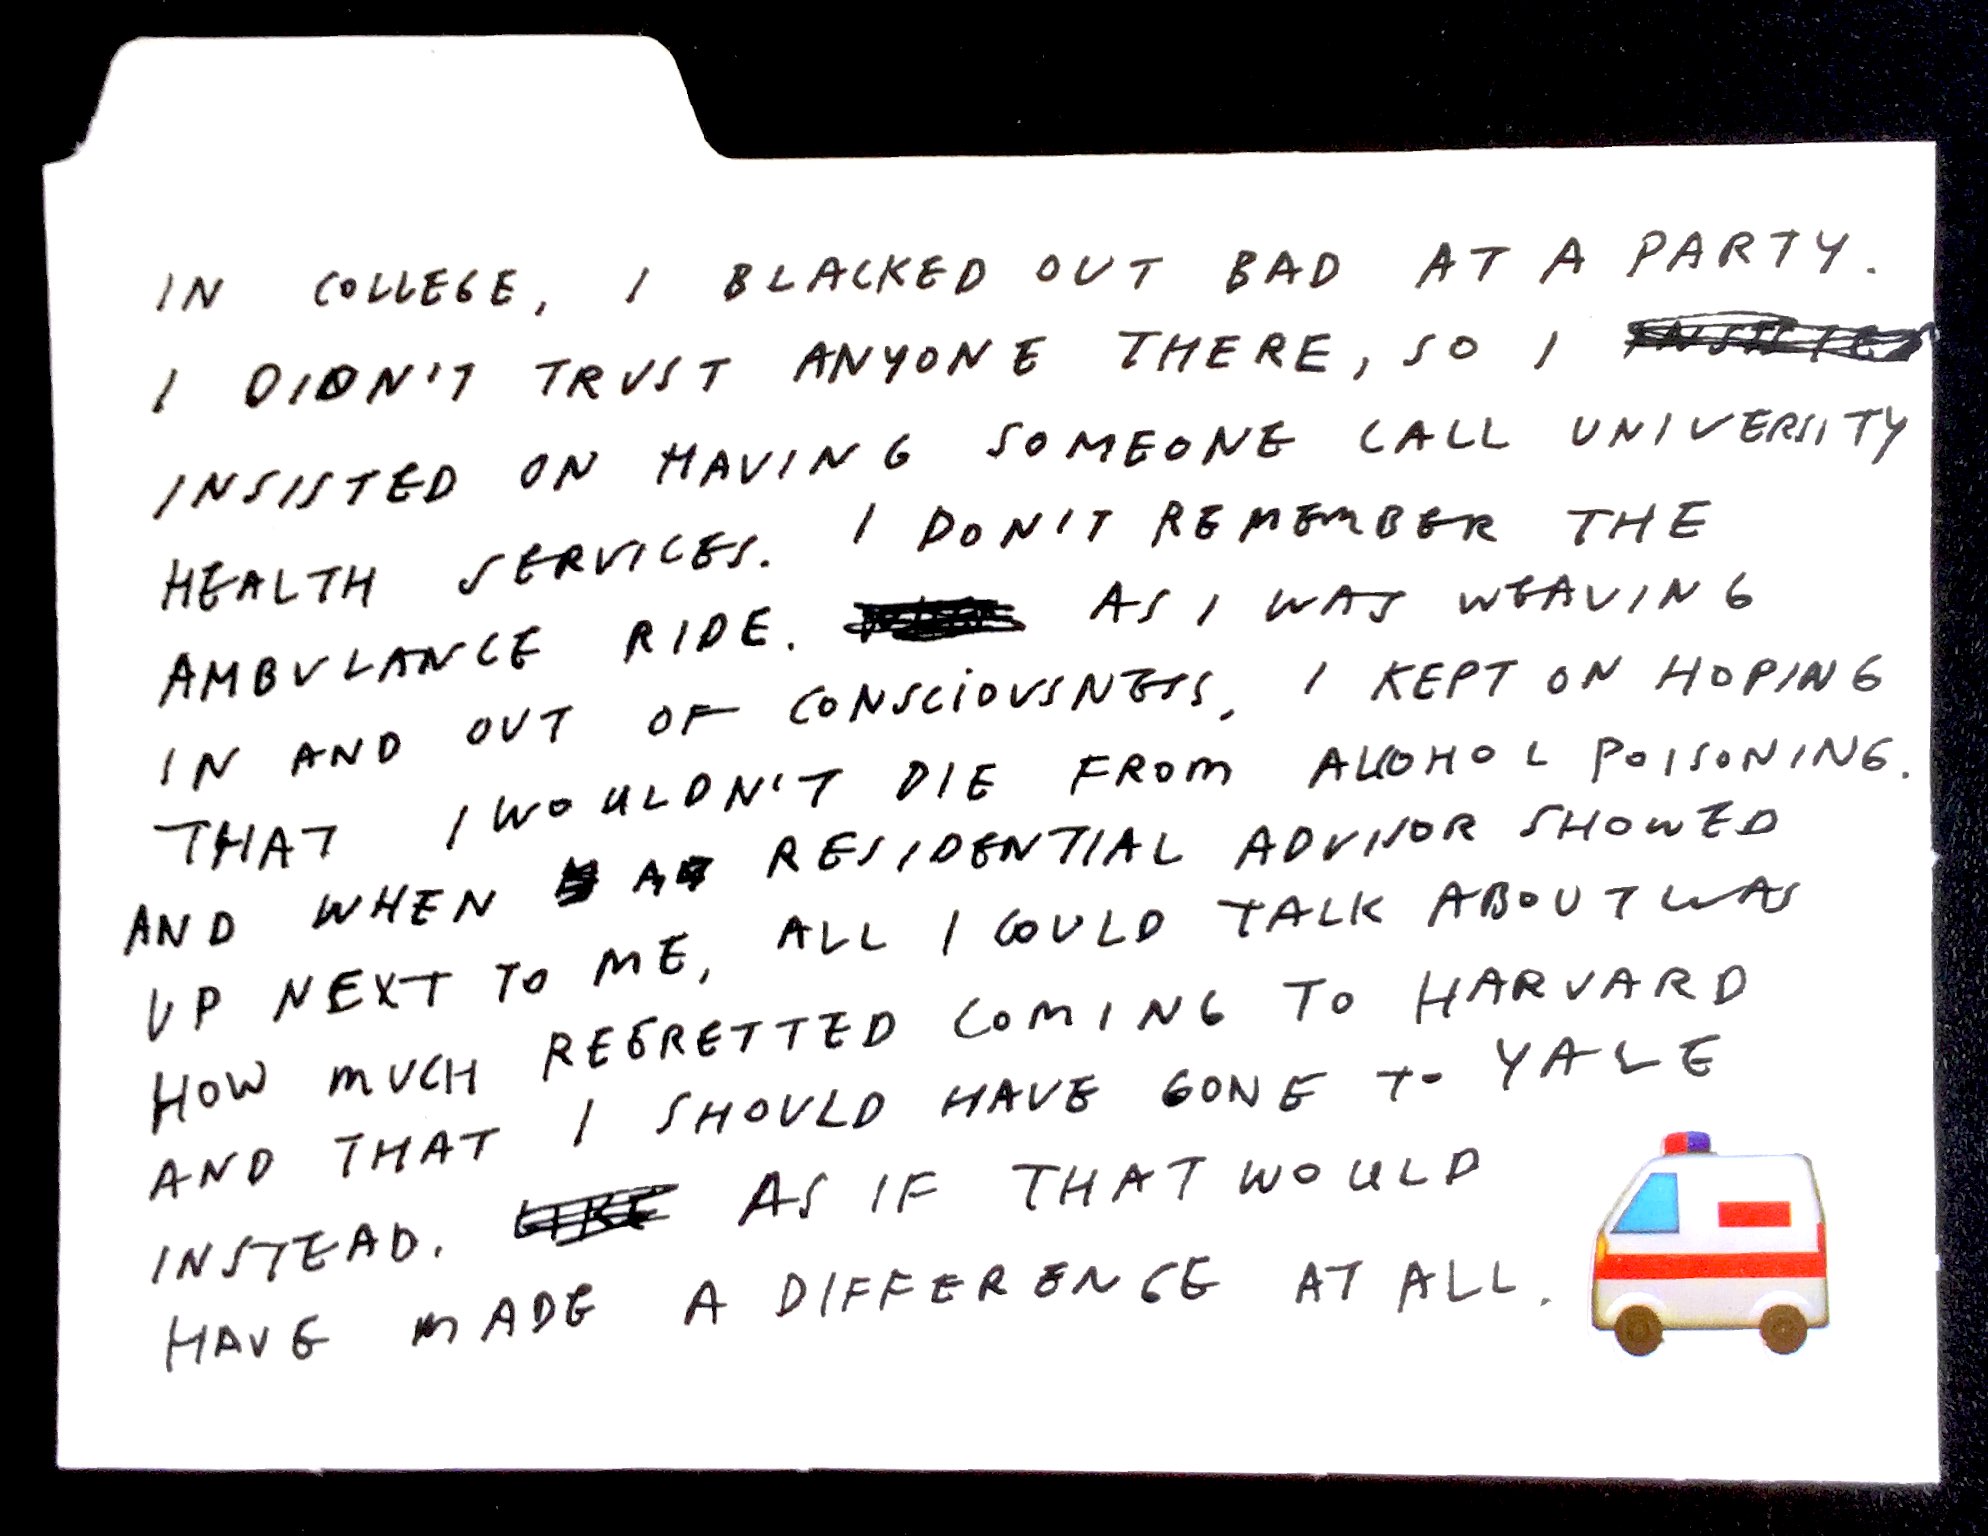 IN COLLEGE, I BLACKED OUT BAD AT A PARTY.
I DIDN'T TRUST ANYONE THERE, SO I
INSISTED ON HAVING SOMEONE CALL UNIVERSITY
HEALTH SERVICES. I DON'T REMEMBER THE
AMBULANCE RIDE. AS I WAS WEAVING
IN AND OUT OF CONSCIOUSNESS, I KEPT ON HOPING
THAT I WOULDN'T DIE FROM ALCOHOL POISONING.
AND WHEN A RESIDENTIAL ADVISOR SHOWED
UP NEXT TO ME, ALL I COULD TALK ABOUT WAS
HOW MUCH REGRETTED COMING TO HARVARD
AND THAT I SHOULD HAVE GONE TO YALE
INSTEAD. AS IF THAT WOULD
HAVE MADE A DIFFERENCE AT ALL.